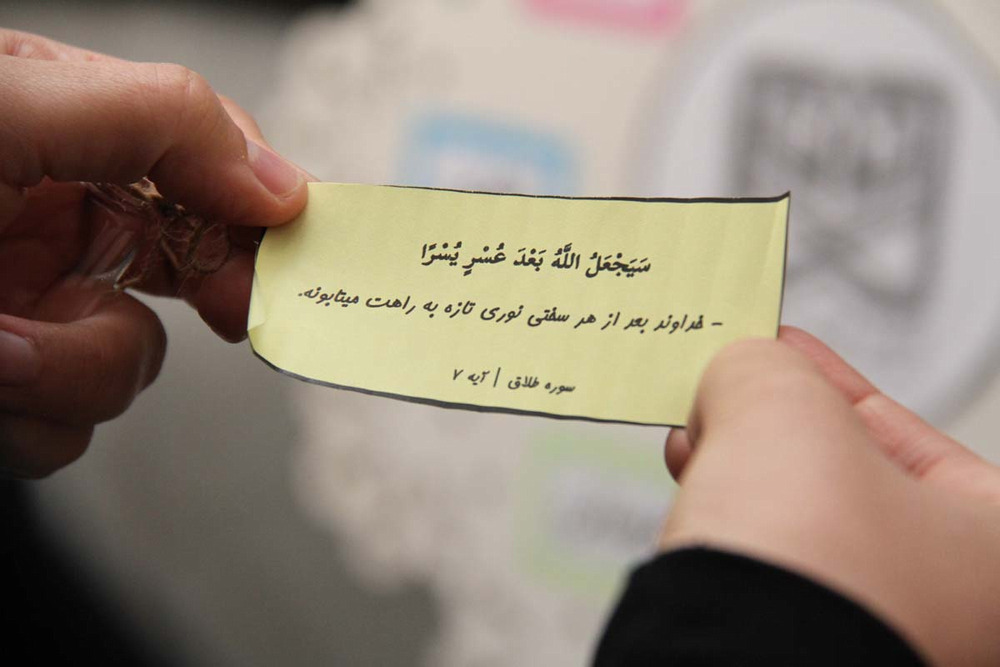 سَيَجْعَلُ اللَّهُ بَعْدَ عُسْرٍ يُسْرًا
- خداوند بعد از هر سختی نوری تازه به راهت میتابونه.
سوره طلاق | آیه ۷